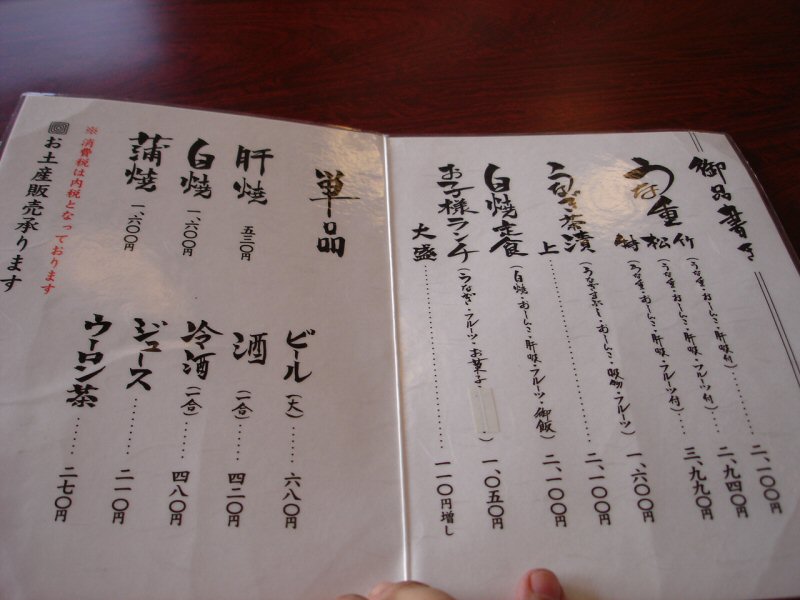 御品書き
うな重
竹(うな重・おしんこ・肝吸付)………二、一〇〇円
松(うな重・おしんこ・肝吸・フルーツ付)……二、九四〇円
特(うな重・おしんこ・肝吸・フルーツ付)……三、九九〇円
うなぎ茶漬(うなぎまぶし・おしんこ・吸物・フルーツ)一、六〇〇円
上………………二、一〇〇円
白焼定食(白焼・おしんこ・肝吸・フルーツ・御飯)二、一〇〇円
お子様ランチ(うなぎ・フルーツ・お菓子……)一、〇五〇円
大盛………………一一〇円増し
単品
肝焼 五三〇円
白焼 一、六〇〇円
蒲焼 一、六〇〇円
ビール(大)……六八〇円
酒(一合)……四二〇円
冷酒(一合)……四八〇円
ジュース………二一〇円
ウーロン茶………二七〇円
※消費税は内税となっております
お土産販売承ります